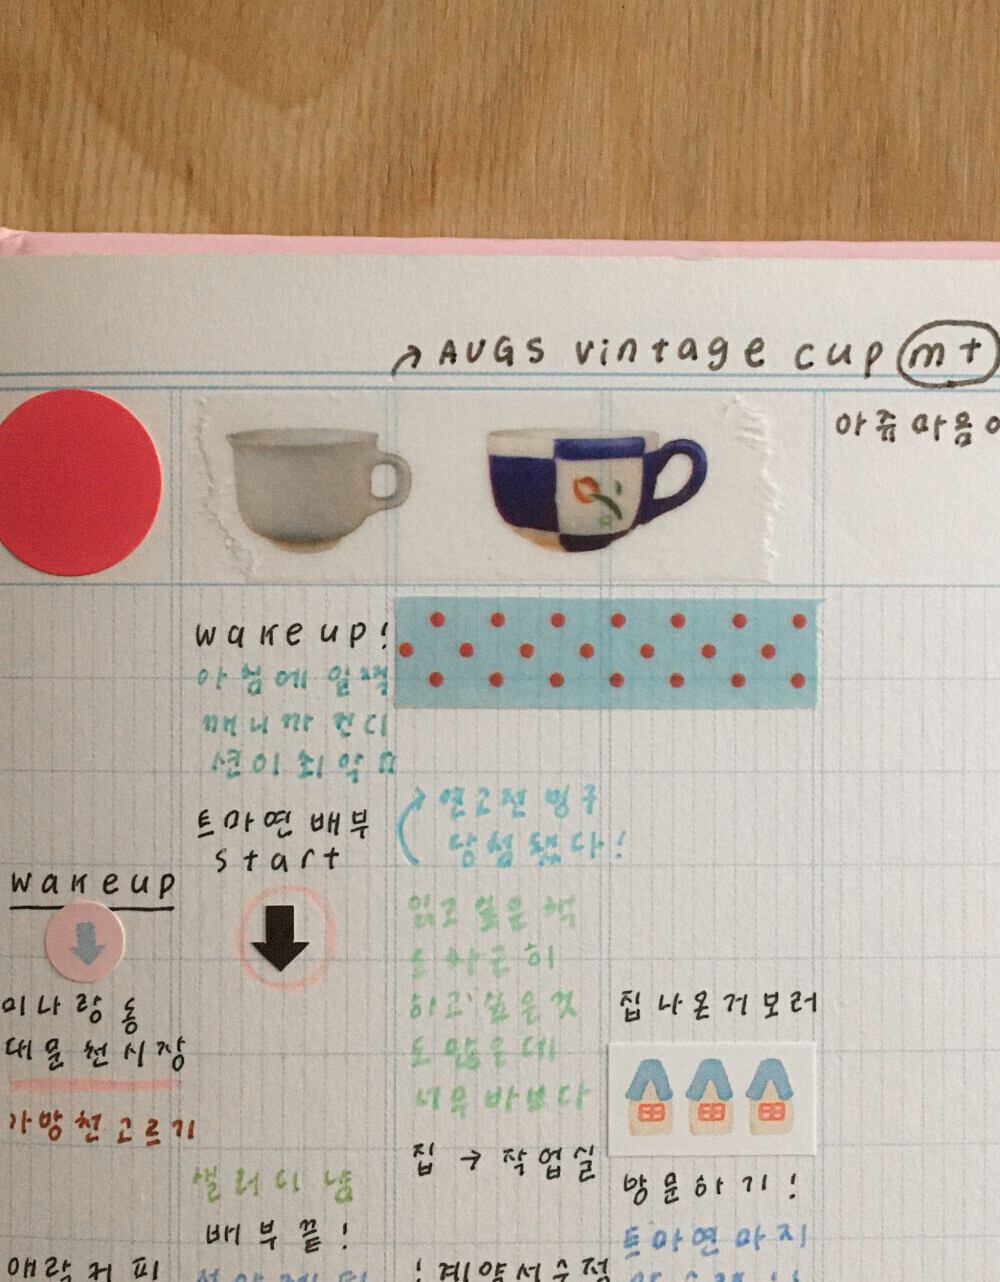 ↗ AUGS vintage cup mt
아쥬 마음
wake up!
아침에 일찍
깨니까 컨디
션이 최악
트마연 배부
start
연고전 빙구
당첨됐다!
wake up
미나랑 동
대문 천시장
가방천 고르기
읽고 싶은 책
도
하고 싶은 것
도 많은데
너무 바쁘다
집 나온거 보러
집 → 작업실
방문하기!
샐러디 냠
배부 끝!
트마연 마지
! 계약서 수정
커피